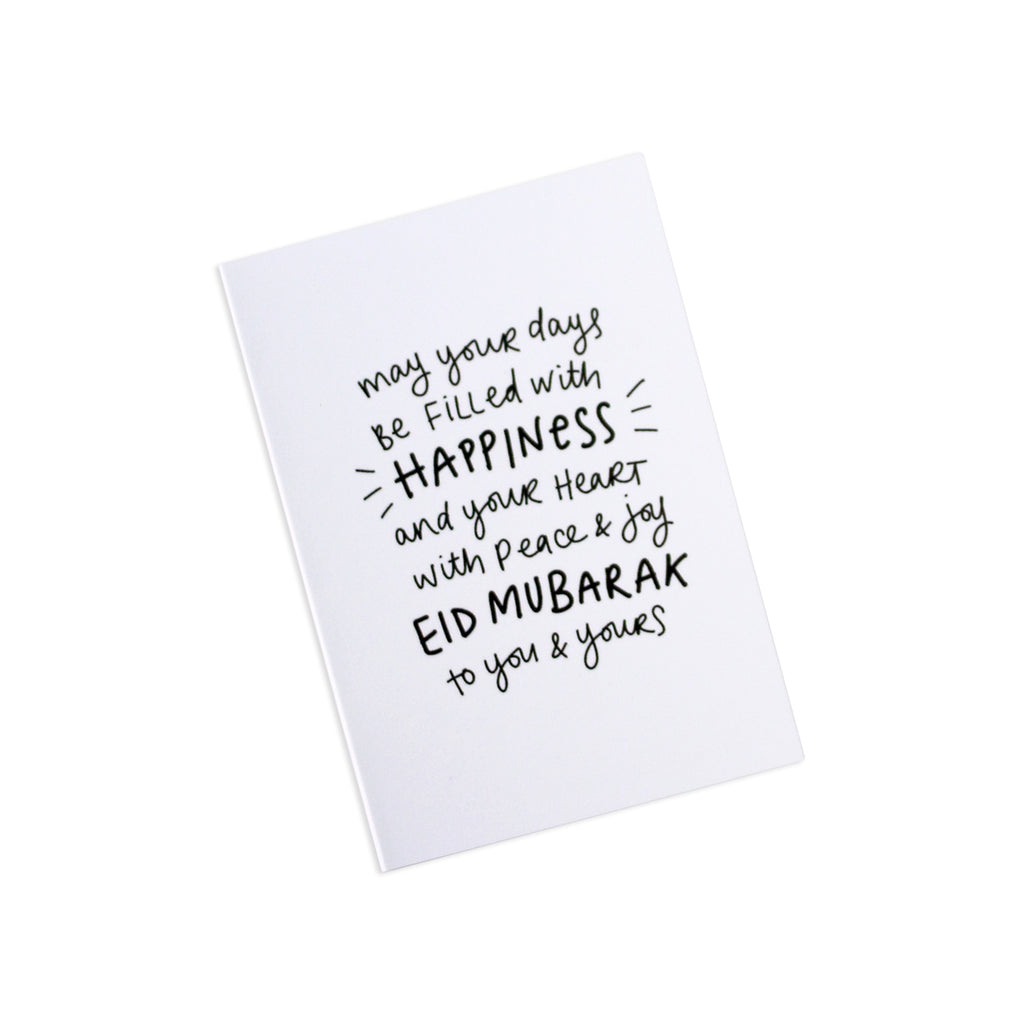 may your days
Be FiLLed with
HAPPINESS
and your HeaRT
with peace & joy
EID MUBARAK
to you & yours